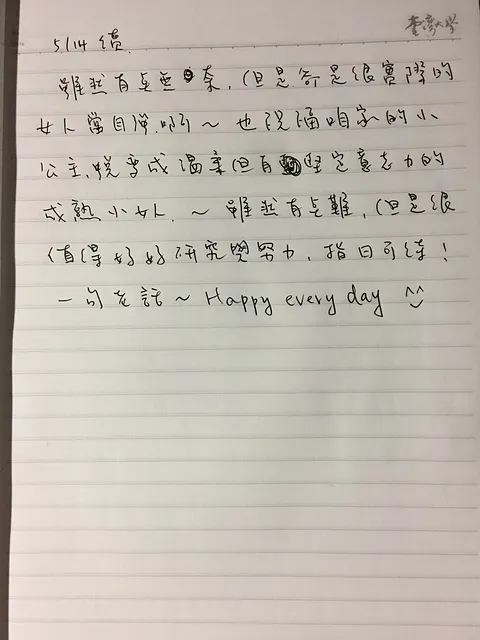 臺灣大學
5/14 續.
雖然有點無奈,但是爺是很實際的
女人當自彈.啊~也祝福咱家的小
公主,蛻變成溫柔但有堅定意志力的
成熟小女人.~雖然有點難,但是很
值得好好研究與努力,指日可待!
一句老話~Happy every day ^^